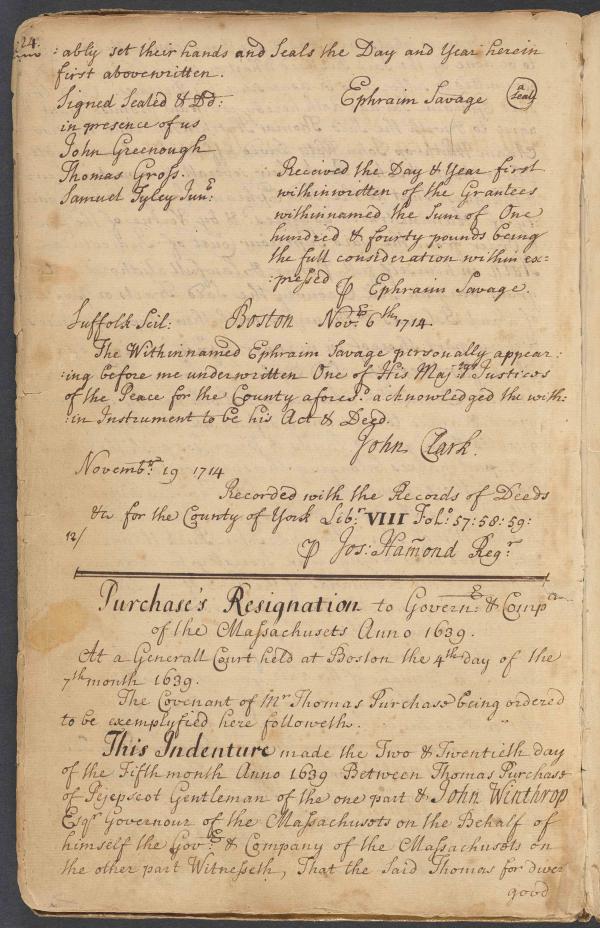 24.
:ably set their hands and Seals the Day and Year herein
first abovewritten.
Signed Sealed & Dd: Ephraim Savage a Seal
in presence of us
John Greenough
Thomas Gross.
Samuel Tyley Junr:
Received the Day & Year first
withinwritten of the Grantees
withinnamed the Sum of One
hundred & fourty pounds being
the full consideration within ex=
:pressed ꝑ Ephraim Savage.
Suffolk Scil: Boston Novr. 6th. 1714.
The Withinnamed Ephraim Savage personally appear:
:ing before me underwritten One of His Majtys Justices
of the Peace for the County aforesd. acknowledged the with:
:in Instrument to be his Act & Deed.
John Clark.
Novembr. 19 1714
Recorded with the Records of Deeds
&c for the County of York Libr. VIII Folo: 57: 58: 59:
12/
ꝑ Jos: Ham̄ond Regr.
Purchase's Resignation to Governr. & Compa
of the Massachusets Anno 1639.
At a Generall Court held at Boston the 4th day of the
7th month 1639.
The Covenant of Mr Thomas Purchase being ordered
to be exemplyfied here followeth.
This Indenture made the Two & Twentieth day
of the Fifth month Anno 1639 Between Thomas Purchase
of Pejepscot Gentleman of the one part & John Winthrop
Esqr Governour of the Massachusets on the Behalf of
himself the Govr. & Company of the Massachusets on
the other part Witnesseth, That the Said Thomas for diver
good